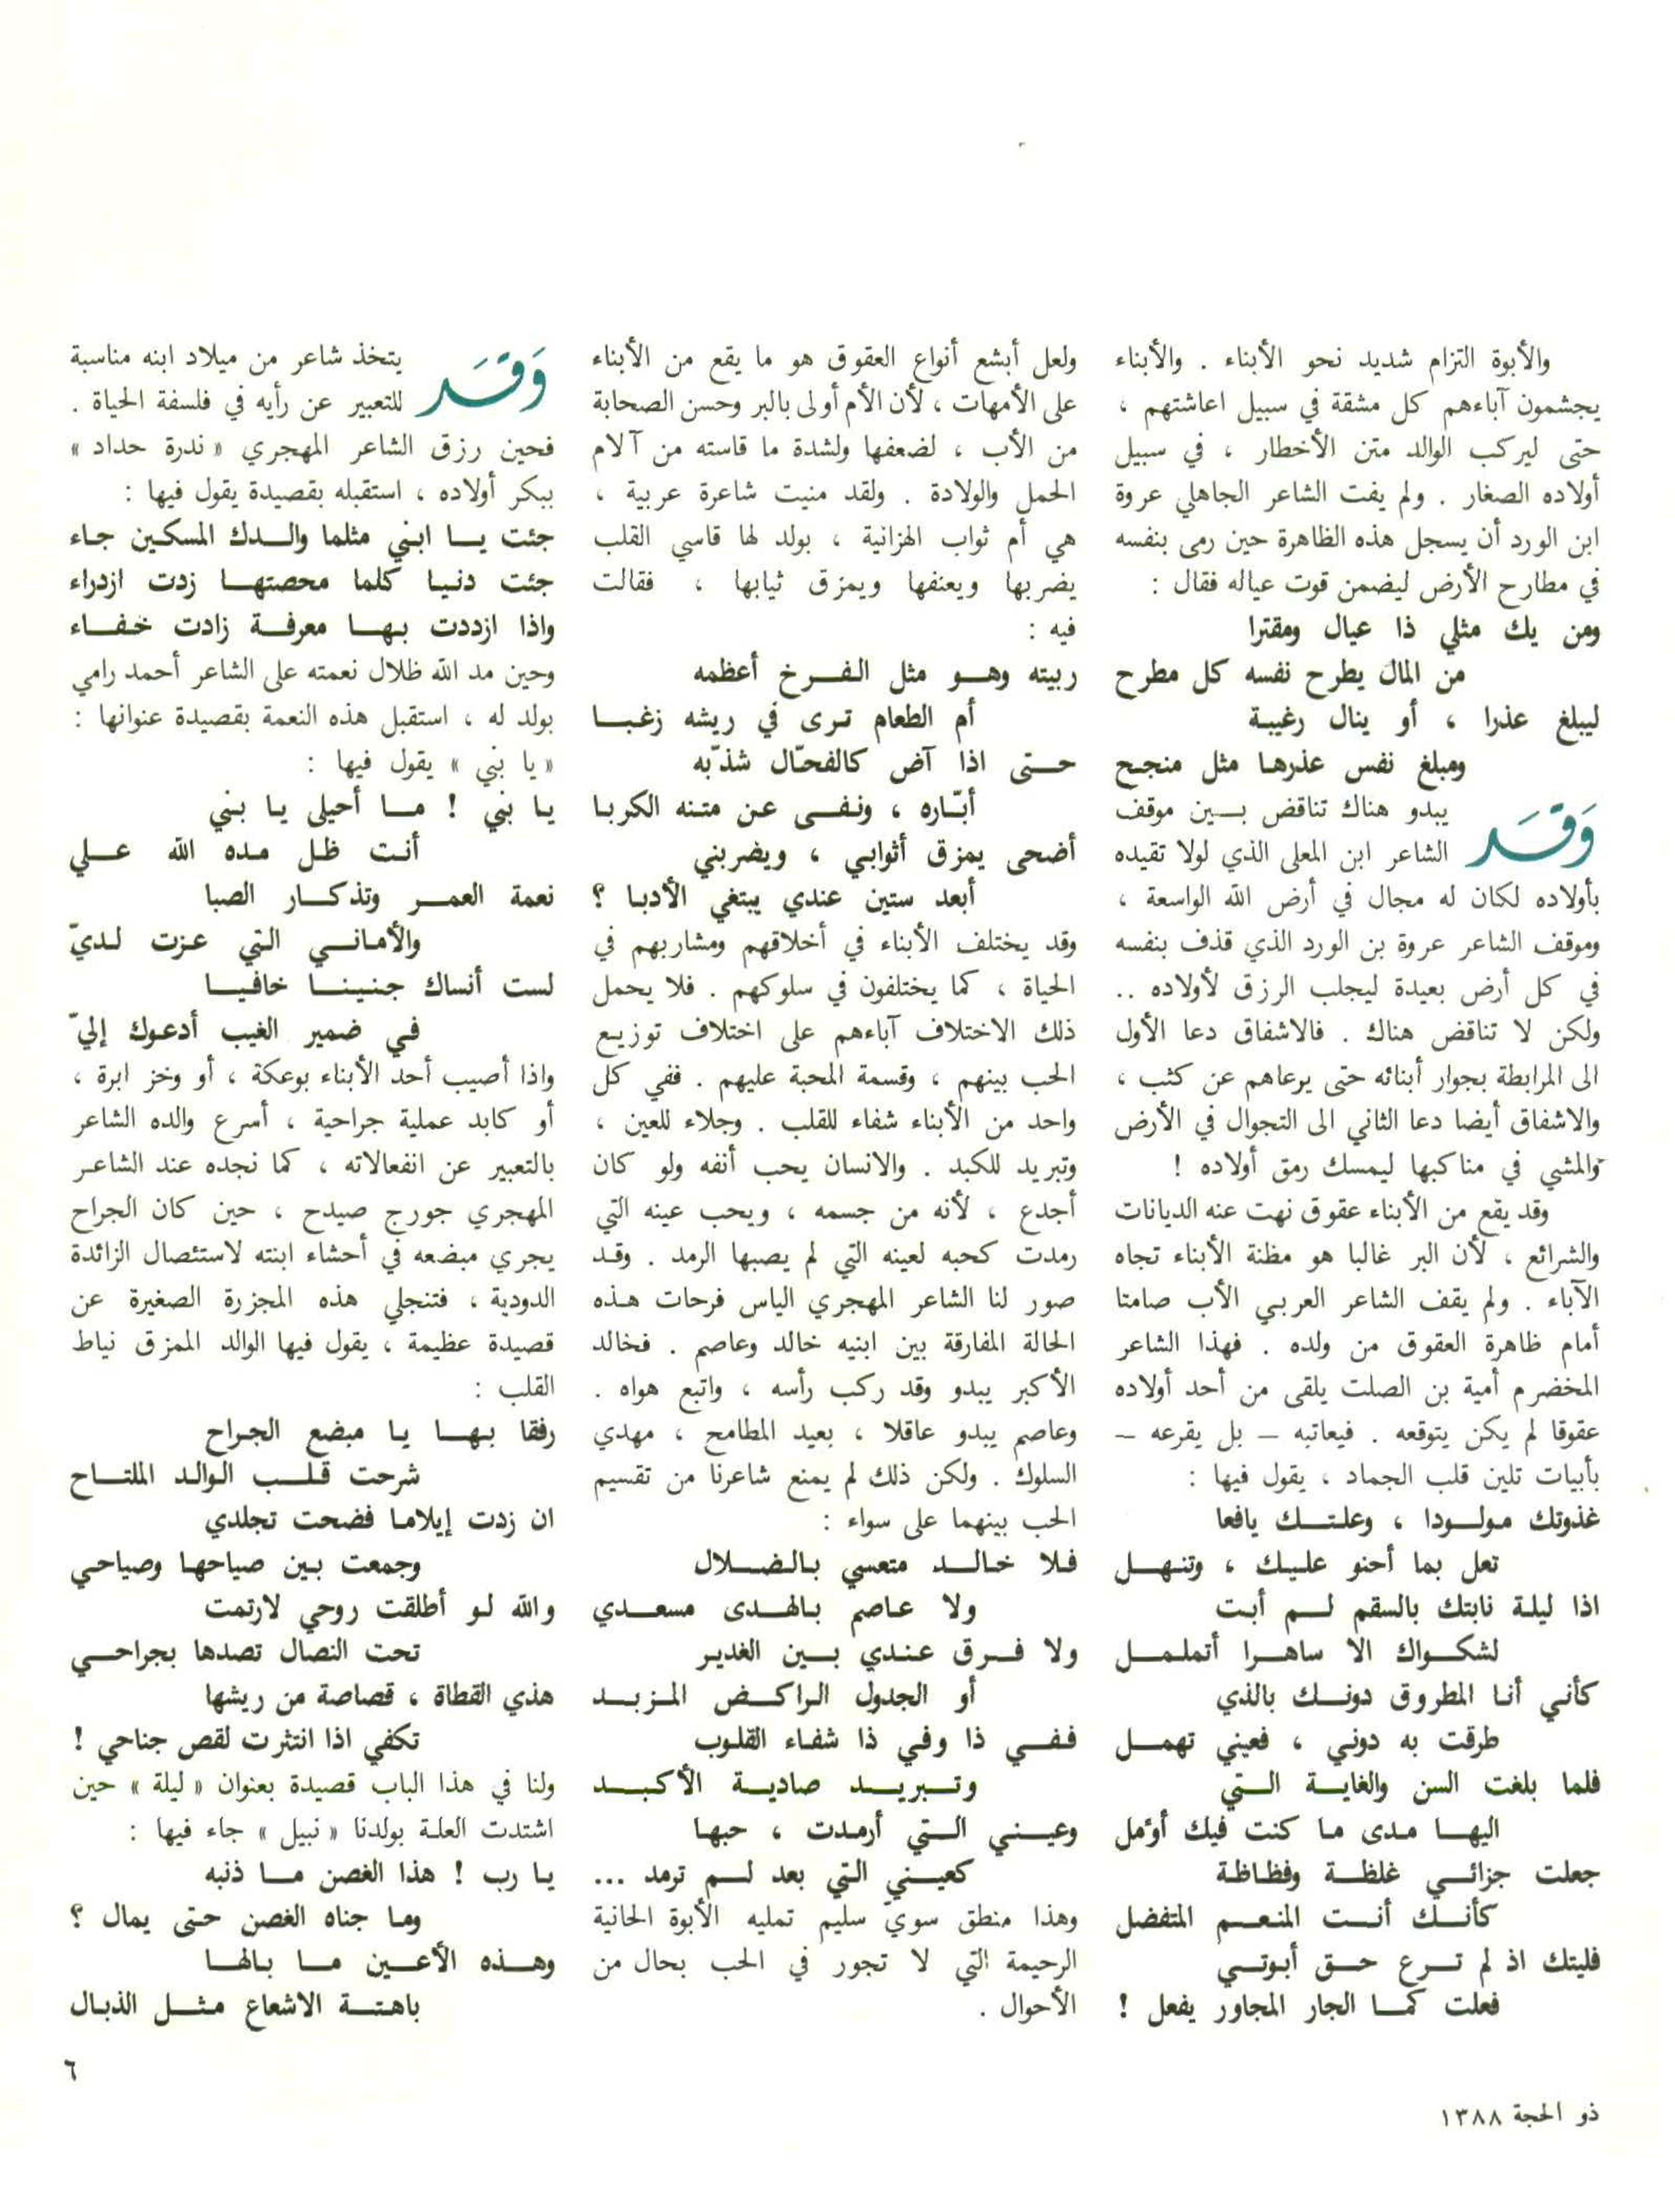 والأبوة التزام شديد نحو الأبناء . والأبناء
يجشمون آباءهم كل مشقة في سبيل اعاشتهم ،
حتى ليركب الوالد متن الأخطار ، في سبيل
أولاده الصغار . ولم يفت الشاعر الجاهلي عروة
ابن الورد أن يسجل هذه الظاهرة حين رمى بنفسه
في مطارح الأرض ليضمن قوت عياله فقال :
ومن يك مثلي ذا عيال ومقترا
من المال يطرح نفسه كل مطرح
ليبلغ عذرا ، أو ينال رغيبة
ومبلغ نفس عذرها مثل منجح
وَقَد يبدو هناك تناقض بين موقف
الشاعر ابن المعلى الذي لولا تقيده
بأولاده لكان له مجال في أرض الله الواسعة ،
وموقف الشاعر عروة بن الورد الذي قذف بنفسه
في كل أرض بعيدة ليجلب الرزق لأولاده ..
ولكن لا تناقض هناك . فالاشفاق دعا الأول
الى المرابطة بجوار أبنائه حتى يرعاهم عن كثب ،
والاشفاق أيضا دعا الثاني الى التجوال في الأرض
والمشي في مناكبها ليمسك رمق أولاده !
وقد يقع من الأبناء عقوق نهت عنه الديانات
والشرائع ، لأن البر غالبا هو مظنة الأبناء تجاه
الآباء . ولم يقف الشاعر العربي الأب صامتا
أمام ظاهرة العقوق من ولده . فهذا الشاعر
المخضرم أمية بن الصلت يلقى من أحد أولاده
عقوقا لم يكن يتوقعه . فيعاتبه – بل يقرعه –
بأبيات تلين قلب الجماد ، يقول فيها :
غذوتك مولودا ، وعلتك يافعا
تعل بما أحنو عليك ، وتنهل
اذا ليلة نابتك بالسقم لم أبت
لشكواك الا ساهرا أتململ
كأني أنا المطروق دونك بالذي
طرقت به دوني ، فعيني تهمل
فلما بلغت السن والغاية التي
اليها مدى ما كنت فيك أؤمل
جعلت جزائي غلظة وفظاظة
كأنك أنت المنعم المتفضل
فليتك اذ لم ترع حق أبوتي
فعلت كما الجار المجاور يفعل !
ولعل أبشع أنواع العقوق هو ما يقع من الأبناء
على الأمهات ، لأن الأم أولى بالبر وحسن الصحابة
من الأب ، لضعفها ولشدة ما قاسته من آلام
الحمل والولادة . ولقد منيت شاعرة عربية ،
هي أم ثواب الهزانية ، بولد لها قاسي القلب
يضربها ويعنفها ويمزق ثيابها ، فقالت
فيه :
ربيته وهو مثل الفرخ أعظمه
أم الطعام ترى في ريشه زغبا
حتى اذا آض كالفحّال شذّبه
أبّاره ، ونفى عن متنه الكربا
أضحى يمزق أثوابي ، ويضربني
أبعد ستين عندي يبتغي الأدبا ؟
وقد يختلف الأبناء في أخلاقهم ومشاربهم في
الحياة ، كما يختلفون في سلوكهم . فلا يحمل
ذلك الاختلاف آباءهم على اختلاف توزيع
الحب بينهم ، وقسمة المحبة عليهم . ففي كل
واحد من الأبناء شفاء للقلب . وجلاء للعين ،
وتبريد للكبد . والانسان يحب أنفه ولو كان
أجدع ، لأنه من جسمه ، ويحب عينه التي
رمدت كحبه لعينه التي لم يصبها الرمد . وقد
صور لنا الشاعر المهجري الياس فرحات هذه
الحالة المفارقة بين ابنيه خالد وعاصم . فخالد
الأكبر يبدو وقد ركب رأسه ، واتبع هواه .
وعاصم يبدو عاقلا ، بعيد المطامح ، مهدي
السلوك . ولكن ذلك لم يمنع شاعرنا من تقسيم
الحب بينهما على سواء :
فلا خالد متعسي بالضلال
ولا عاصم بالهدى مسعدي
ولا فرق عندي بين الغدير
أو الجدول الراكض المزبد
ففي ذا وفي ذا شفاء القلوب
وتبريد صادية الأكبد
وعيني التي أرمدت ، حبها
كعيني التي بعد لم ترمد ...
وهذا منطق سويّ سليم تمليه الأبوة الحانية
الرحيمة التي لا تجور في الحب بحال من
الأحوال .
وَقَد يتخذ شاعر من ميلاد ابنه مناسبة
للتعبير عن رأيه في فلسفة الحياة .
فحين رزق الشاعر المهجري « ندرة حداد »
ببكر أولاده ، استقبله بقصيدة يقول فيها :
جئت يا ابني مثلما والدك المسكين جاء
جئت دنيا كلما محصتها زدت ازدراء
واذا ازددت بها معرفة زادت خفاء
وحين مد الله ظلال نعمته على الشاعر أحمد رامي
بولد له ، استقبل هذه النعمة بقصيدة عنوانها :
« يا بني » يقول فيها :
يا بني ! ما أحيلى يا بني
أنت ظل مده الله علي
نعمة العمر وتذكار الصبا
والأماني التي عزت لديّ
لست أنساك جنينا خافيا
في ضمير الغيب أدعوك إليّ
واذا أصيب أحد الأبناء بوعكة ، أو وخز ابرة ،
أو كابد عملية جراحية ، أسرع والده الشاعر
بالتعبير عن انفعالاته ، كما نجده عند الشاعر
المهجري جورج صيدح ، حين كان الجراح
يجري مبضعه في أحشاء ابنته لاستئصال الزائدة
الدودية ، فتنجلي هذه المجزرة الصغيرة عن
قصيدة عظيمة ، يقول فيها الوالد الممزق نياط
القلب :
رفقا بها يا مبضع الجراح
شرحت قلب الوالد الملتاح
ان زدت إيلاما فضحت تجلدي
وجمعت بين صياحها وصياحي
والله لو أطلقت روحي لارتمت
تحت النصال تصدها بجراحي
هذي القطاة ، قصاصة من ريشها
تكفي اذا انتثرت لقص جناحي !
ولنا في هذا الباب قصيدة بعنوان « ليلة » حين
اشتدت العلة بولدنا « نبيل » جاء فيها :
يا رب ! هذا الغصن ما ذنبه
وما جناه الغصن حتى يمال ؟
وهذه الأعين ما بالها
باهتة الاشعاع مثل الذبال
٦
ذو الحجة ١٣٨٨